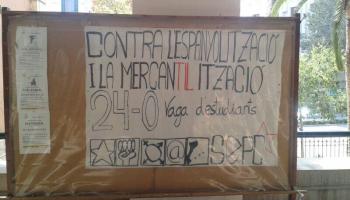 CONTRA L'ESPANYOLITZACIÓ
I LA MERCANTILITZACIÓ
24-O Vaga d'estudiants
SEPC